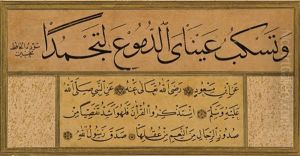 وتسكب عيناى الدموع لتجمدا
عن ابن مسعود رضى الله تعالى عنه عن النبى صلى الله
عليه وسلم استذكروا القرآن فلهو اشد تفصيا من
صدور الرجال من النعم من عقلها صدق رسول الله